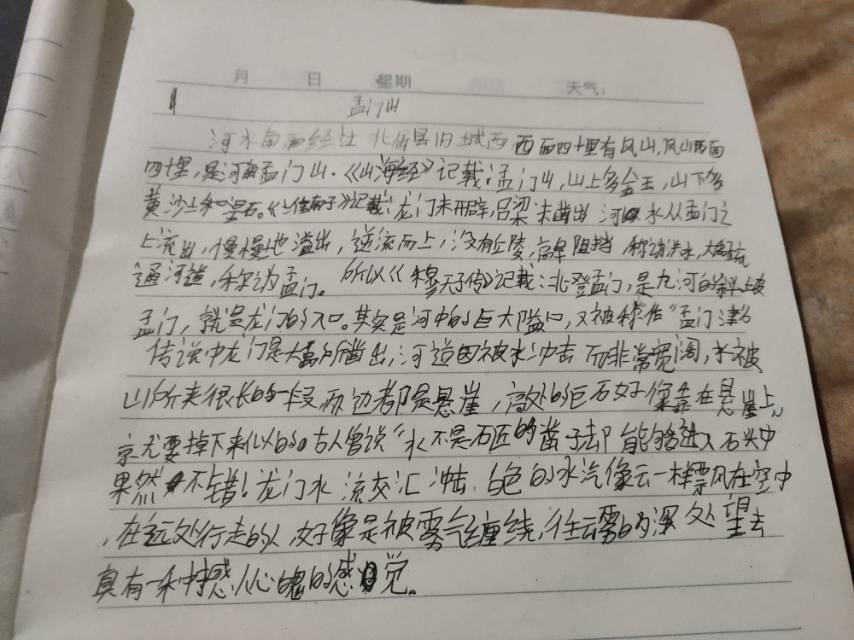 月 日 星期 天气:
1 孟门山
河水南面经过 北屈县旧城西 西面四十里有风山,风山西面
四十里,是河南孟门山.《山海经》记载:孟门山,山上多金玉,山下多
黄沙土和涅石。《 》记载:龙门未开辟,吕梁未凿出 河 水从孟门之
上流出,慢慢地溢出,逆流而上,没有丘陵,高阜阻挡 称为洪水,大禹疏
通河道,称为孟门。所以《穆天子传》记载:北登孟门,是九河的斜坡
孟门,就是龙门的入口。其实是河中的巨大隘口,又被称作“孟门津”。
传说中龙门是大禹所凿出,河道因被水冲击 而非常宽阔,水被
山所夹很长的一段 两边都是悬崖,高处的巨石好像靠在悬崖上,
就要掉下来似的。古人曾说“水不是石匠的凿子却 能够进入石头中
果然 不错!龙门水 流交汇冲击.白色的水汽像云一样飘在空中
,在远处行走的人,好像是被雾气缠绕,往云雾的深处望去
真有一种撼人心魄的感 觉。